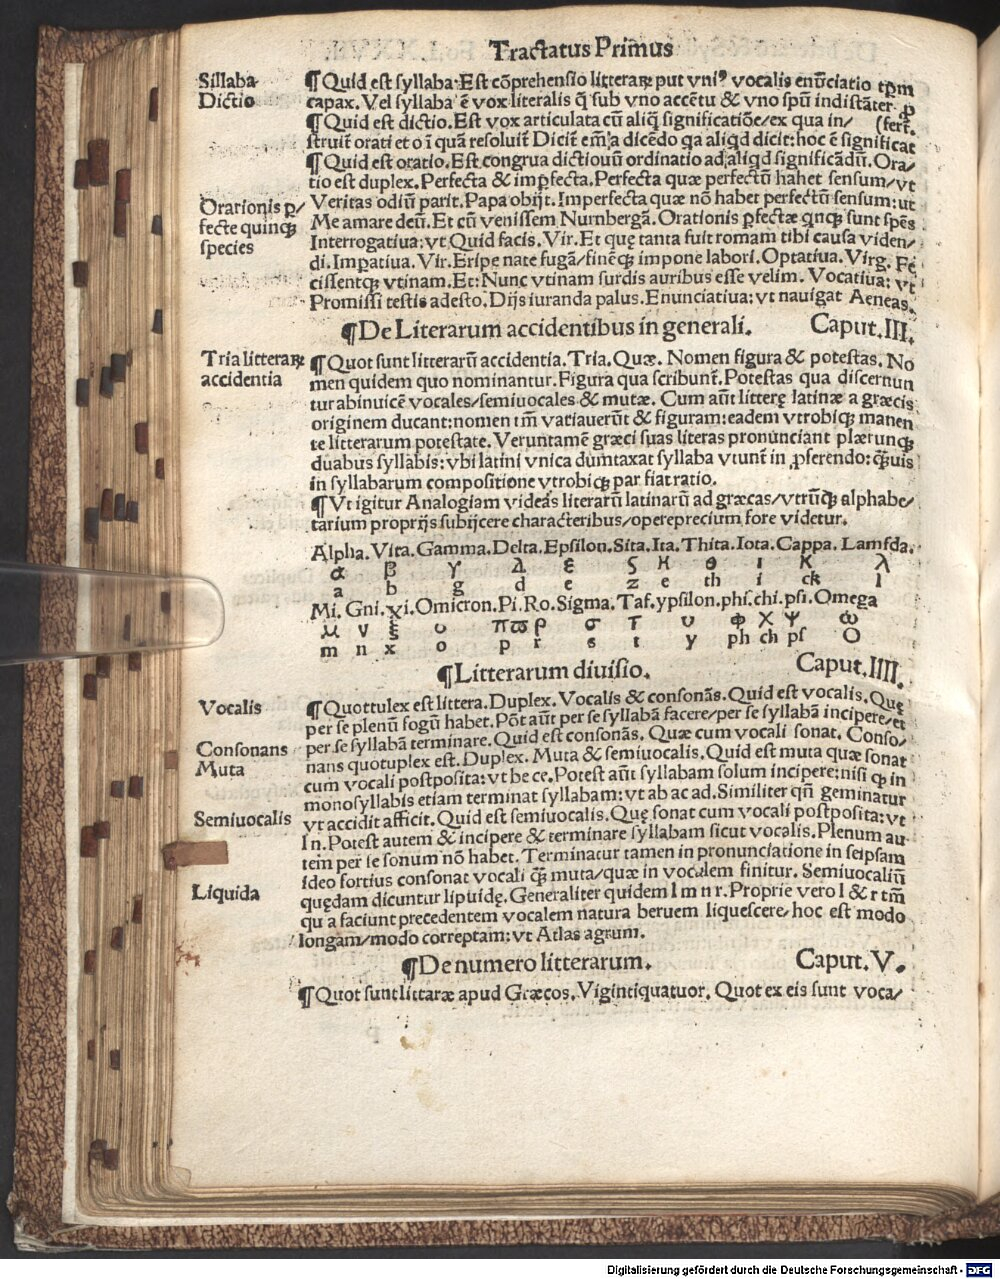 Tractatus Primus
Sillaba
Dictio
¶Quid est syllaba. Est cōprehensio litteraꝝ put vniꝰ vocalis enūciatio tꝑm
capax. Vel syllaba ē vox literalis q̄ sub vno accētu & vno spū indistāter ꝓ
¶Quid est dictio. Est vox articulata cū aliq̄ significatiōe/ex qua in/ (fert̃.
struit̃ orati et o i quā resoluit̃ Dicit̃ em̄ a dicēdo qa aliqd dicit: hoc ē significat
¶Quid est oratio. Est congrua dictiouū ordinatio ad aliqd significādū. Ora/
tio est duplex. Perfecta & imꝑfecta. Perfecta quæ perfectū habet sensum/vt
Orationis ꝑ/
fecte quinqꝫ
species
Veritas odiū parit. Papa obijt. Imperfecta quæ nō habet perfectū sensum: ut
Me amare deū. Et cū venissem Nurnbergā. Orationis ꝑfectæ qnqꝫ sunt spēs
Interrogatiua: vt Quid facis. Vir. Et quę tanta fuit romam tibi causa viden/
di. Imꝑatiua. Vir. Eripe nate fugā/finēqꝫ impone labori. Optatiua. Virg. Fe
cissentqꝫ vtinam. Et: Nunc vtinam surdis auribus esse velim. Vocatiua: vt
Promissi testis adesto. Dijs iuranda palus. Enunciatiua: vt nauigat Aeneas.
¶De Literarum accidentibus in generali. Caput. III.
Tria litteraꝝ
accidentia
¶Quot sunt litterarū accidentia. Tria. Quæ. Nomen figura & potestas. No
men quidem quo nominantur. Figura qua scribunt̃. Potestas qua discernun
tur abinuicē vocales/semiuocales & mutæ. Cum aūt litterę latinæ a græcis
originem ducant: nomen tm̄ vatiauerūt & figuram: eadem vtrobiqꝫ manen
te litterarum potestate. Veruntamē græci suas literas pronunciant plærunqꝫ
duabus syllabis: vbi latini vnica dumtaxat syllaba vtunt̃ in ꝓferendo: q̄uis
in syllabarum compositione vtrobiqꝫ par fiat ratio.
¶Vt igitur Analogiam videas literarū latinarū ad græcas/vtrūqꝫ alphabe/
tarium proprijs subijcere characteribus/opereprecium fore videtur.
Alpha. Vita. Gamma. Delta. Epsilon. Sita. Ita. Thita. Iota. Cappa. Lamfda.
α β γ Δ ε ϛ H θ ι K λ
a b g d e z e th i ck l
Mi. Gni. xi. Omicron. Pi. Ro. Sigma. Taf. ypsilon. phi. chi. psi. Omega
μ ν ξ ο π ϖ ρ σ τ υ Φ X Ψ ω
m n x o p r s t y ph ch ps O
¶Litterarum diuisio. Caput. IIII.
Vocalis
¶Quottulex est littera. Duplex. Vocalis & consonās. Quid est vocalis. Quę
per se plenū sogū habet. Pōt aūt per se syllabā facere/per se syllabā incipere/et
per se syllabā terminare. Quid est consonās. Quæ cum vocali sonat. Conso/
Consonans
Muta
nans quotuplex est. Duplex. Muta & semiuocalis. Quid est muta quæ sonat
cum vocali postposita: vt be ce. Potest aūt syllabam solum incipere: nisi ꝙ in
monosyllabis etiam terminat syllabam: vt ab ac ad. Similiter qn̄ geminatur
Semiuocalis
vt accidit afficit. Quid est semiuocalis. Quę sonat cum vocali postposita: vt
In. Potest autem & incipere & terminare syllabam sicut vocalis. Plenum au
tem per se sonum nō habet. Terminatur tamen in pronunciatione in seipsam
ideo fortius consonat vocali q̄ꝫ muta/quæ in vocalem finitur. Semiuocaliū
Liquida
quędam dicuntur lipuidę. Generaliter quidem l m n r. Proprie vero l & r tm̄
qu a faciunt precedentem vocalem natura beruem liquescere/hoc est modo
longam/modo correptam: vt Atlas agrum.
¶De numero litterarum. Caput. V.
¶Quot sunt littaræ apud Græcos. Vigintiquatuor. Quot ex eis sunt voca/
Digitalisierung gefördert durch die Deutsche Forschungsgemeinschaft - DFG